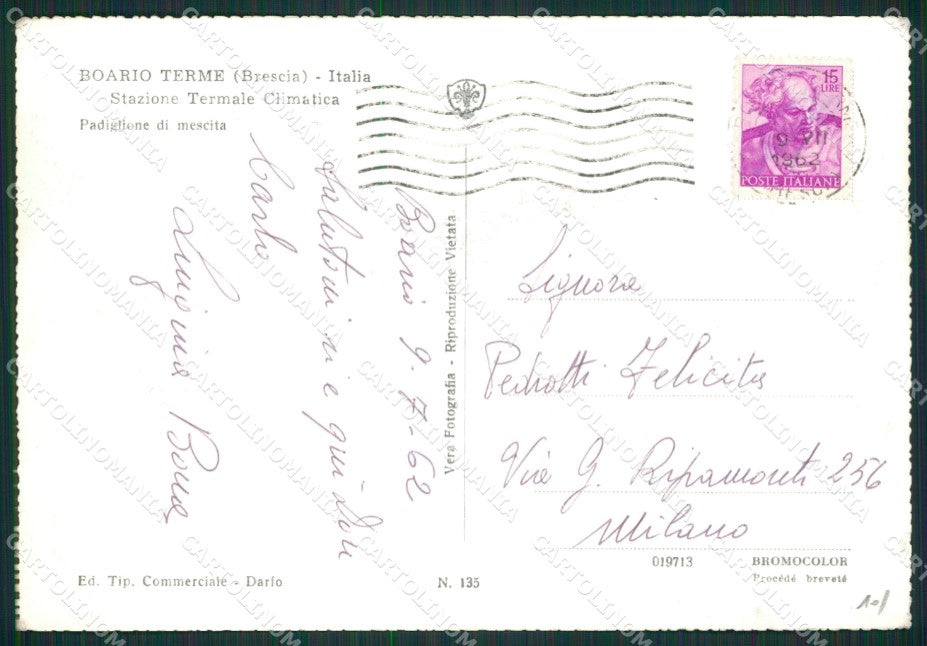 BOARIO TERME (Brescia) - Italia
Stazione Termale Climatica
Padiglione di mescita
Boario 9-7-62
Salutoni
e qui Don
Carlo
Luigina Bona
Vera Fotografia - Riproduzione Vietata
15
LIRE
POSTE ITALIANE
9 VII
1962
Signora
Pedrotti Felicita
Via G. Ripamonti 256
Milano
019713
BROMOCOLOR
Procédé breveté
Ed. Tip. Commerciale - Darfo
N. 135
10/
CARTOLINOMANIA